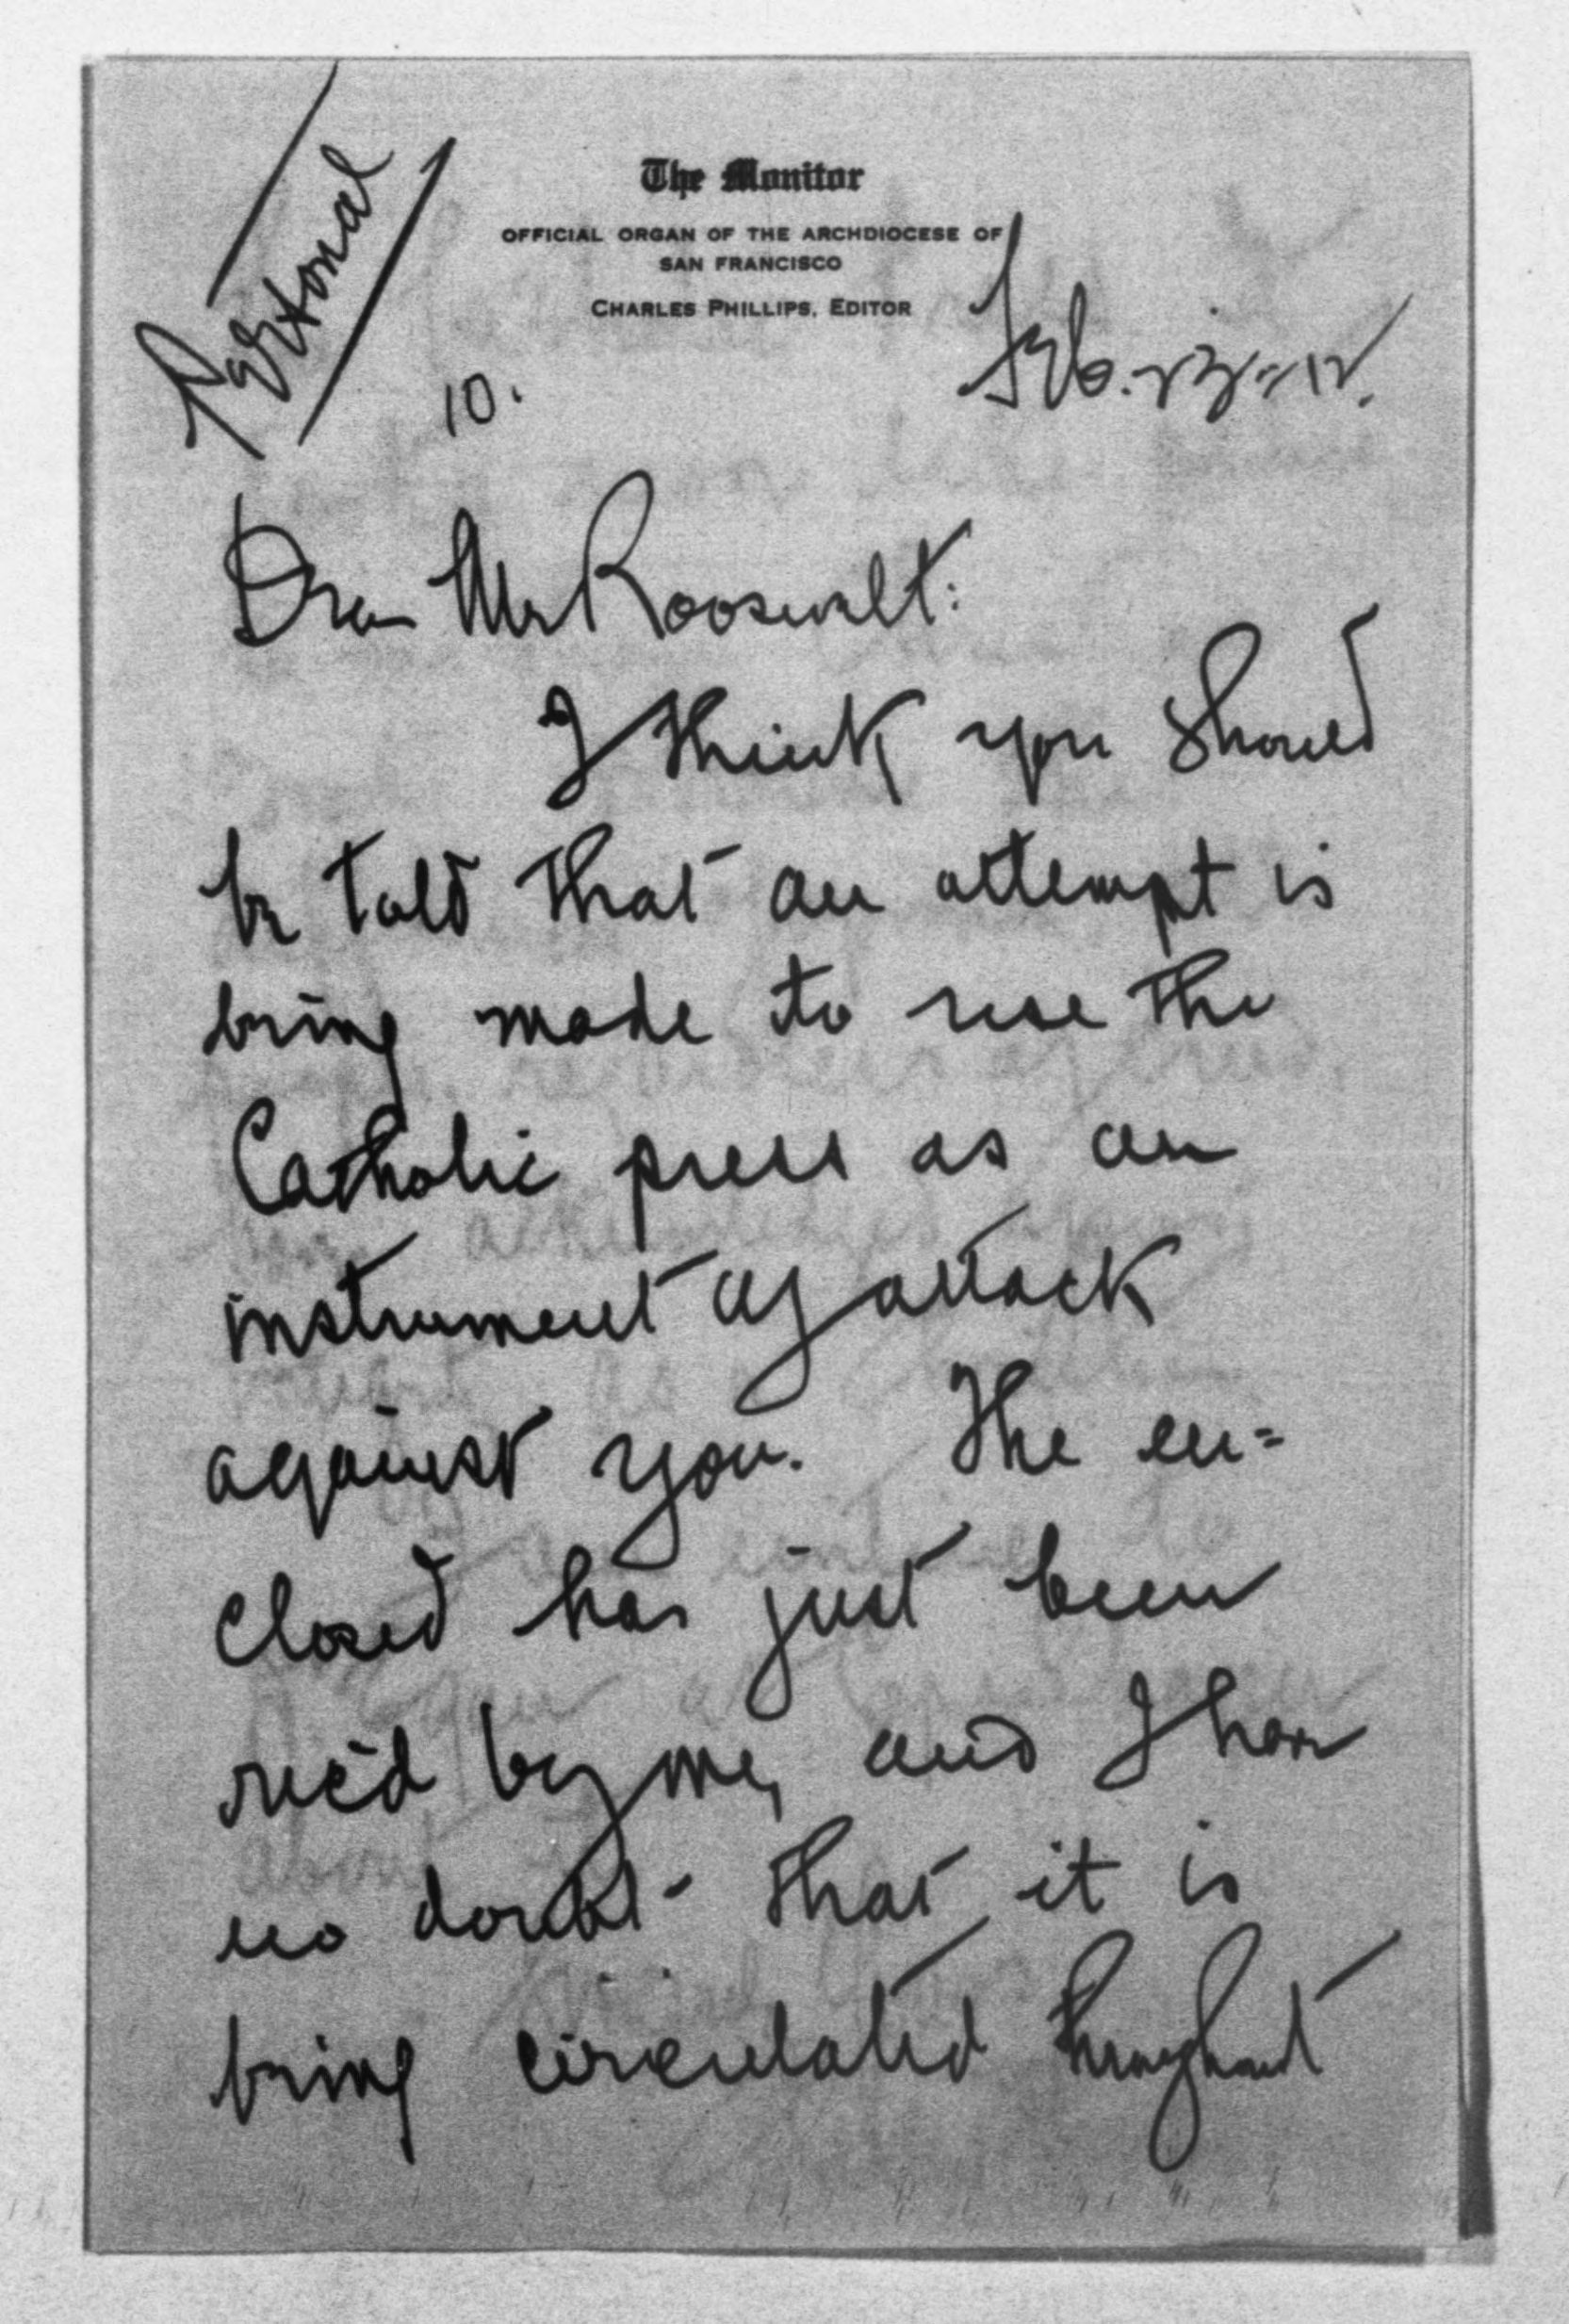 Personal
The Monitor
OFFICIAL ORGAN OF THE ARCHDIOCESE OF
SAN FRANCISCO
CHARLES PHILLIPS, EDITOR
10.
Feb. 23-12.
Dear Mr Roosevelt:
I think you should
be told that an attempt is
being made to use the
Catholic press as an
instrument of attack
against you. The en=
closed has just been
rec'd by me, and I have
no doubt that it is
being circulated throughout